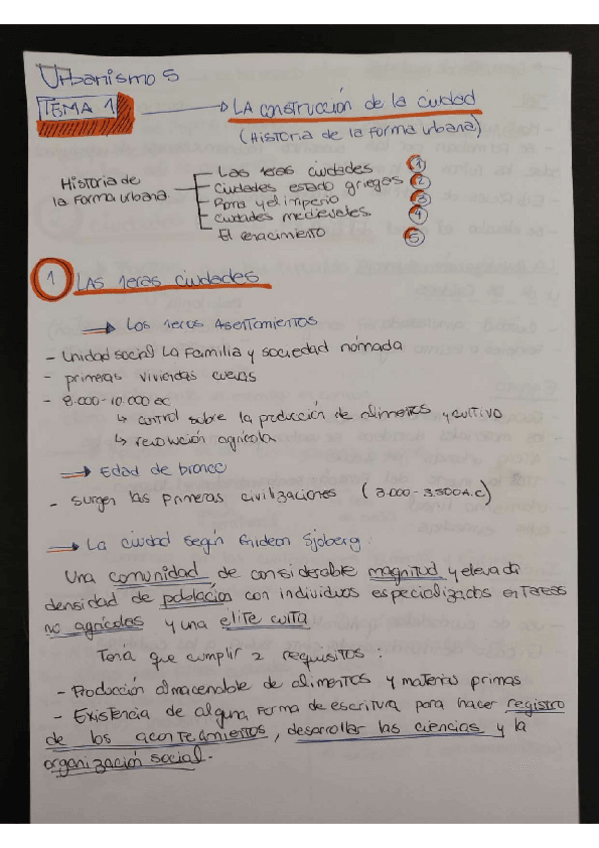 Urbanismo 5
TEMA 1 → LA construcción de la ciudad
(Historia de la Forma urbana)
Historia de la Forma urbana
Las 1eras ciudades 1
Ciudades estado griegas 2
Roma y el imperio 3
Ciudades medievales 4
El renacimiento 5
1 LAS 1eras ciudades
→ Los 1eros Asentamientos
- Unidad social La Familia y sociedad nómada
- primeras viviendas cuevas
- 8.000-10.000 ac
↳ control sobre la producción de alimentos y cultivo
↳ revolución agrícola
→ Edad de bronce
- Surgen las primeras civilizaciones (3.000-3.500A.C)
→ La ciudad según Gideon Sjoberg:
Una comunidad de considerable magnitud y elevada
densidad de población con individuos especializados en tareas
no agrícolas y una elite culta
Tenía que cumplir 2 requisitos:
- Producción almacenable de alimentos y materias primas
- Existencia de alguna forma de escritura para hacer registro
de los acontecimientos, desarrollar las ciencias y la
organización social.